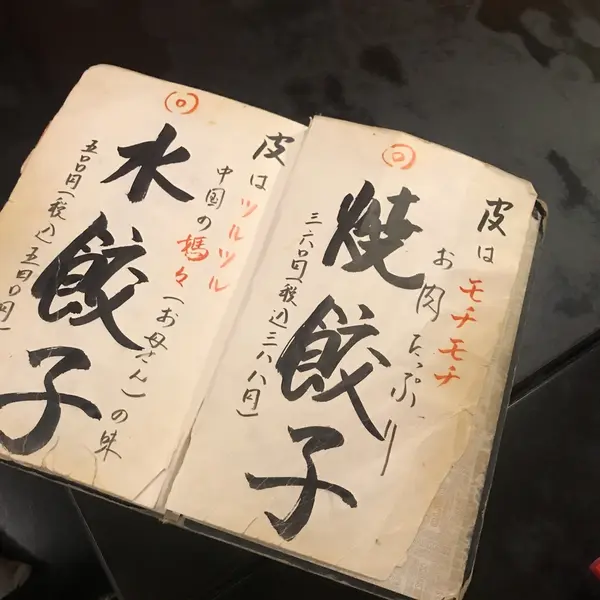 皮はモチモチ
お肉たっぷり
焼餃子
三六〇円(税込三八八円)
皮はツルツル
中国の媽々(お母さん)の味
水餃子
五〇〇円(税込五四〇円)